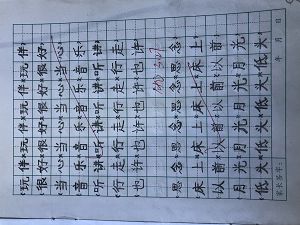 玩伴玩伴玩伴玩伴
很好很好很好很好
当心当心当心当心
音乐音乐音乐音乐
听讲听讲听讲听讲
行走行走行走行走
也许也许也许也许
思念思念思念思念
床上床上床上床上
以前以前以前以前
月光月光月光月光
低头低头低头低头
家长签字: 年 月 日